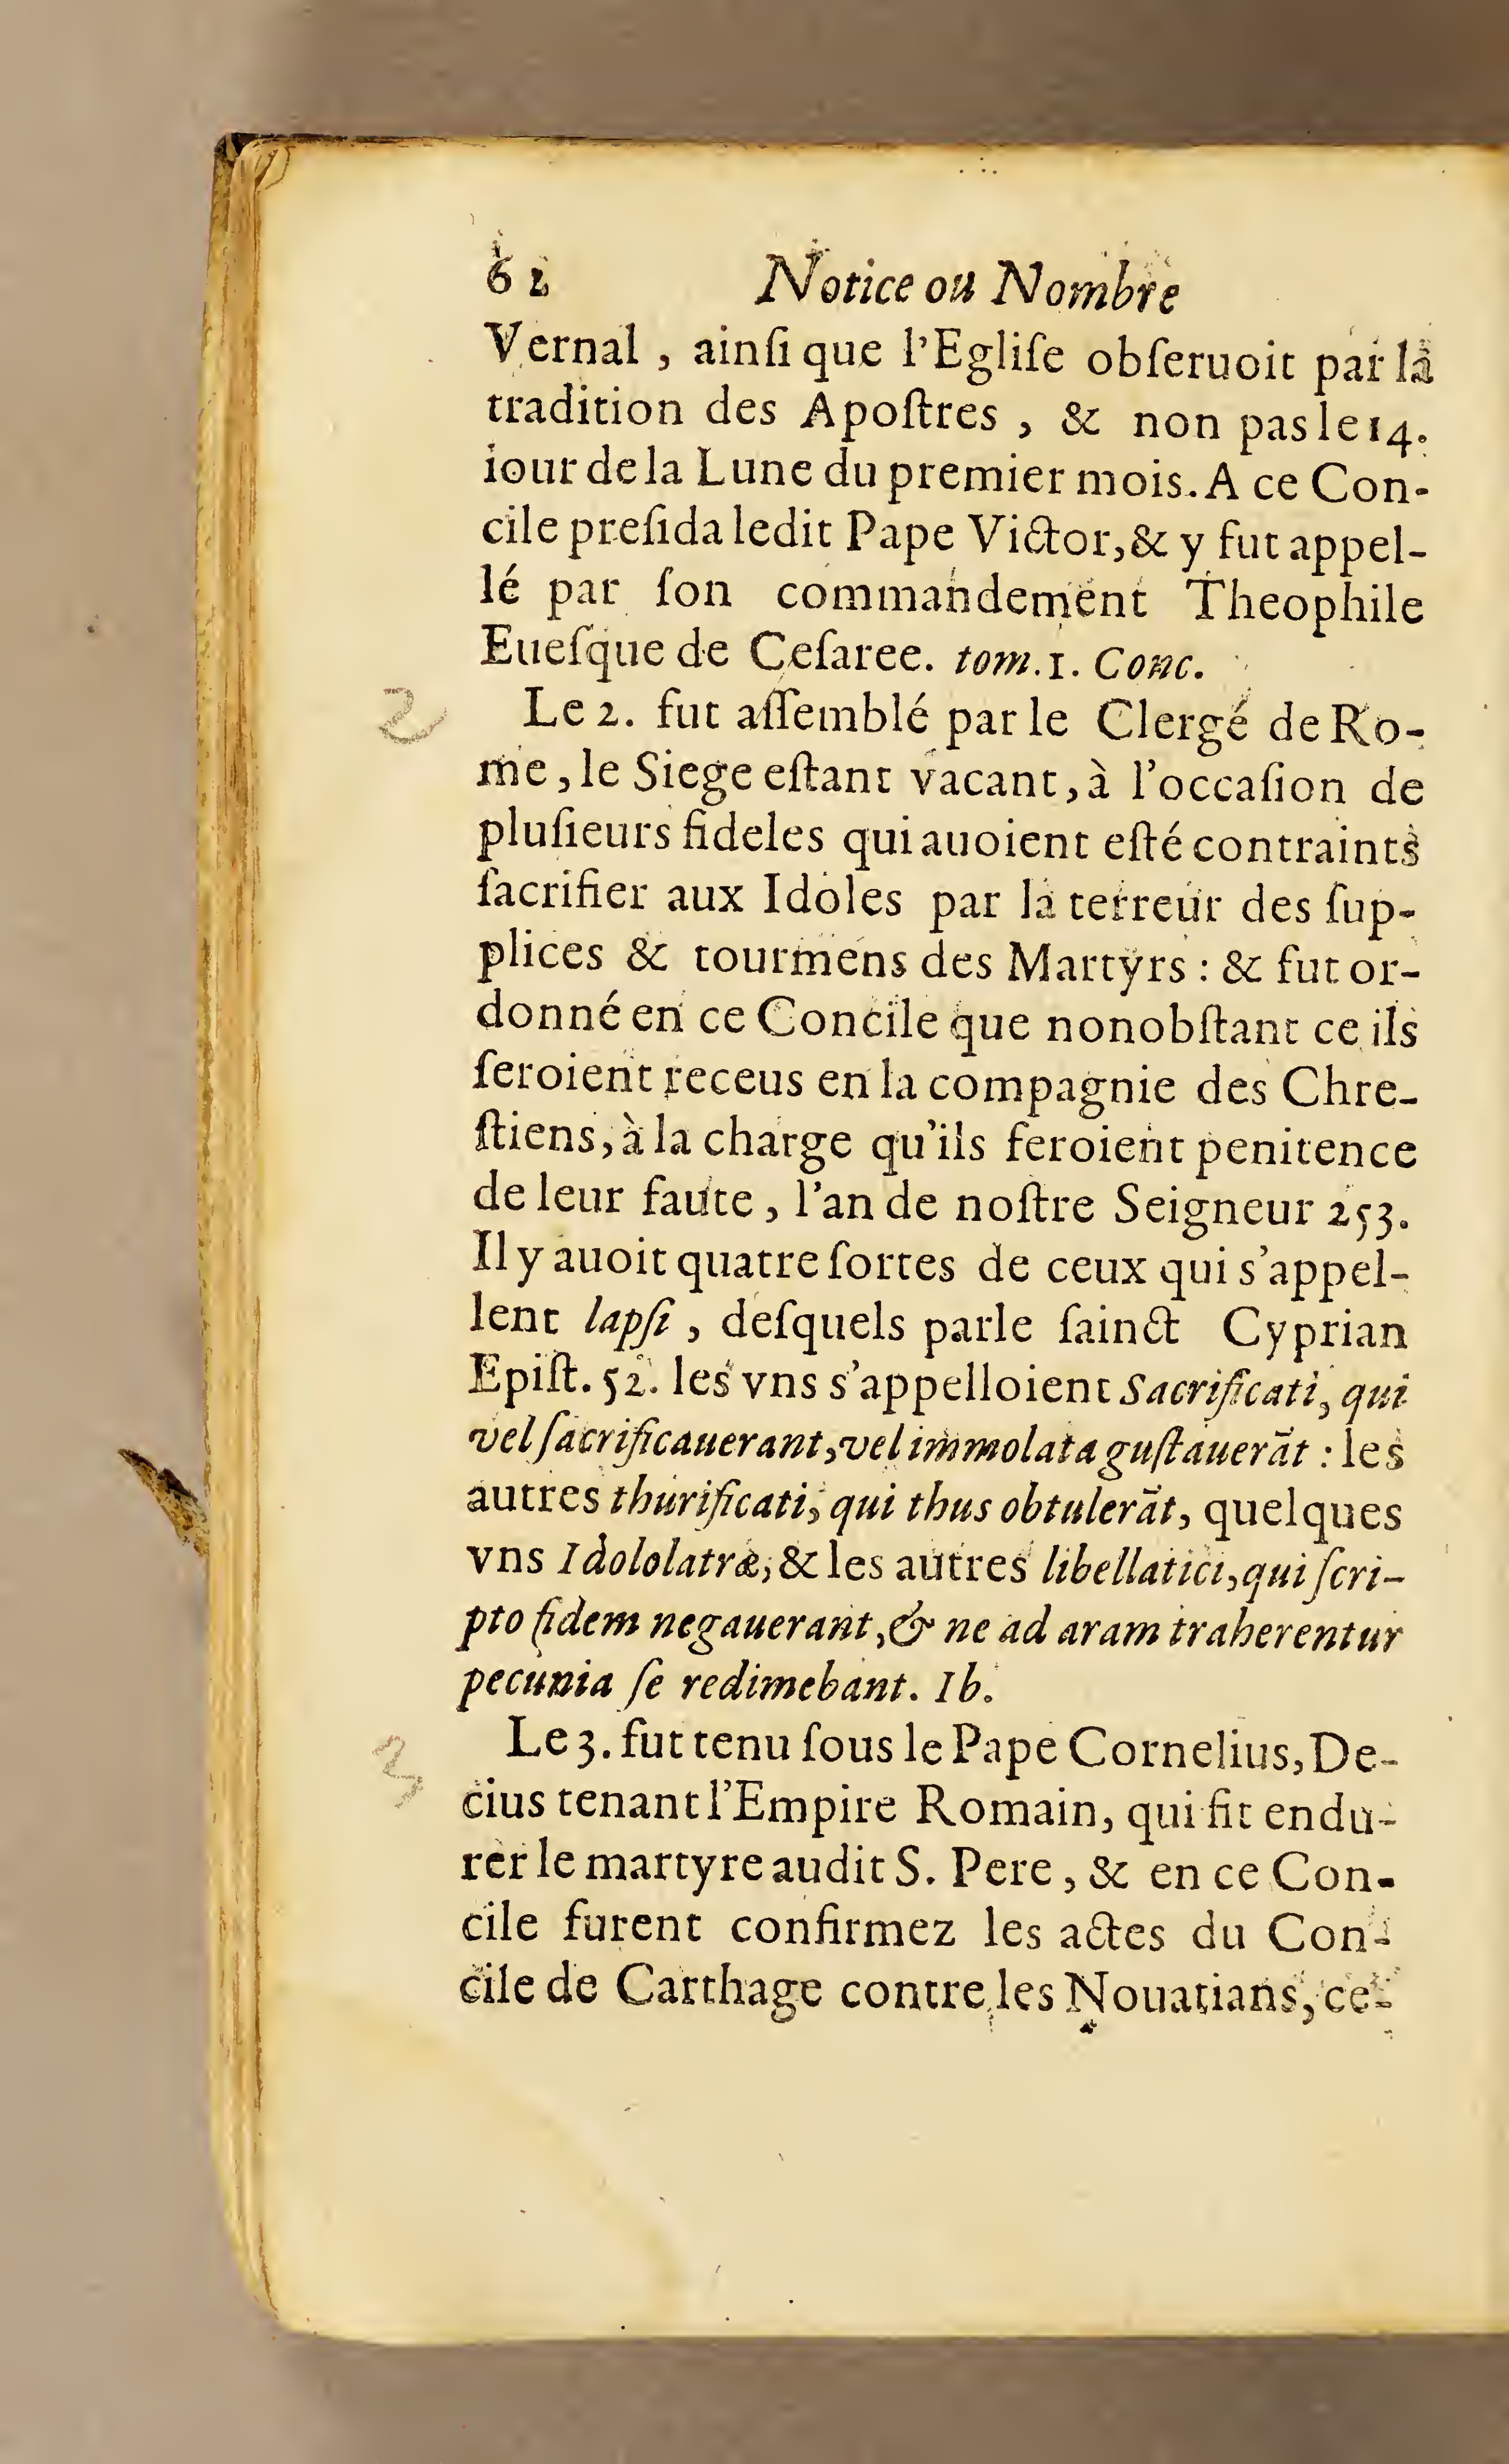 62 Notice ou Nombre
Vernal, ainſi que l'Egliſe obſeruoit par la
tradition des Apoſtres, & non pas le 14.
iour de la Lune du premier mois. A ce Con-
cile preſida ledit Pape Victor, & y fut appel-
lé par ſon commandement Theophile
Eueſque de Ceſaree. tom. 1. Conc.
2
Le 2. fut aſſemblé par le Clergé de Ro-
me, le Siege eſtant vacant, à l'occaſion de
pluſieurs fideles qui auoient eſté contraints
ſacrifier aux Idoles par la terreur des ſup-
plices & tourmens des Martyrs : & fut or-
donné en ce Concile que nonobſtant ce ils
ſeroient receus en la compagnie des Chre-
ſtiens, à la charge qu'ils feroient penitence
de leur faute, l'an de noſtre Seigneur 253.
Il y auoit quatre ſortes de ceux qui s'appel-
lent lapſi, deſquels parle ſainct Cyprian
Epiſt. 52. les vns s'appelloient Sacrificati, qui
vel ſacrificauerant, vel immolata guſtauerāt : les
autres thurificati, qui thus obtulerāt, quelques
vns Idololatræ, & les autres libellatici, qui ſcri-
pto fidem negauerant, & ne ad aram traherentur
pecunia ſe redimebant. Ib.
3
Le 3. fut tenu ſous le Pape Cornelius, De-
cius tenant l'Empire Romain, qui fit endu-
rer le martyre audit S. Pere, & en ce Con-
cile furent confirmez les actes du Con-
cile de Carthage contre les Nouatians, ce-